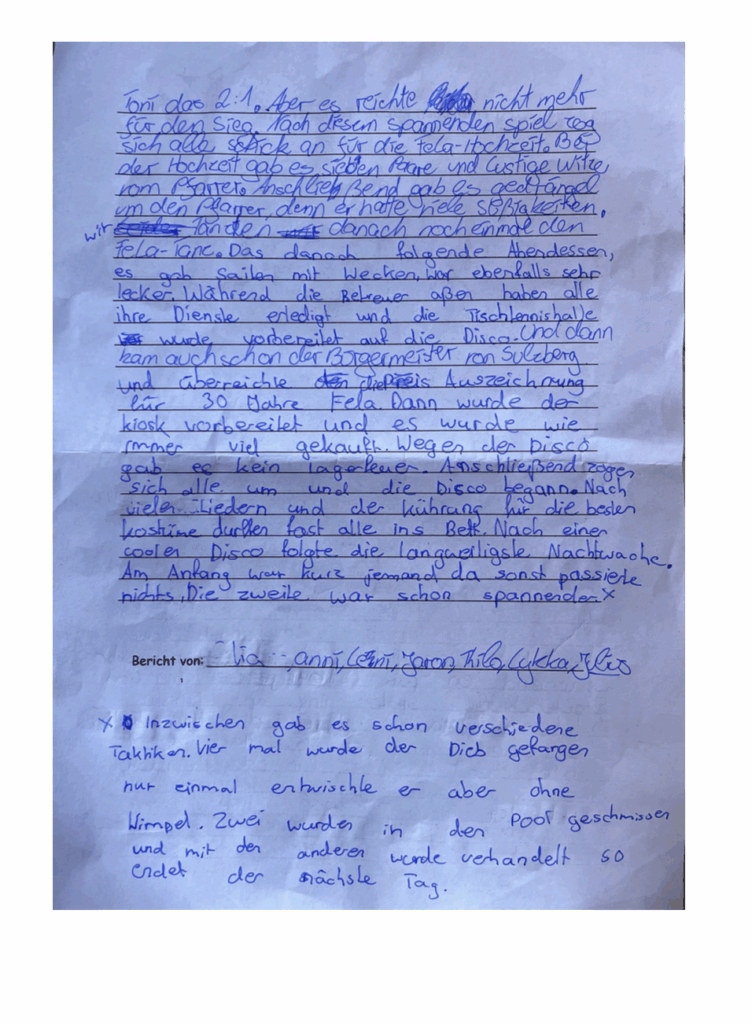 Toni das 2:1. Aber es reichte nicht mehr
für den Sieg. Nach diesem spannenden Spiel zog
sich alle schick an für die Fela-Hochzeit. Bei
der Hochzeit gab es sieben Paare und lustige Witze
vom Pfarrer. Anschließend gab es gedrängel
um den Pfarrer, denn er hatte viele Süßigkeiten.
wir danach noch einmal den
Fela-Tanz. Das danach folgende Abendessen,
es gab Saiten mit Wecken, war ebenfalls sehr
lecker. Während die Betreuer aßen haben alle
ihre Dienste erledigt und die Tischtennishalle
wurde vorbereitet auf die Disco. Und dann
kam auch schon der Bürgermeister von Sulzberg
und überreichte die Auszeichnung
für 30 Jahre Fela. Dann wurde der
kiosk vorbereitet und es wurde wie
immer viel gekauft. Wegen der Disco
gab es kein lagerfeuer. Anschließend zogen
sich alle um und die Disco begann. Nach
vielen Liedern und der kührung für die besten
kostüme durften fast alle ins Bett. Nach einer
coolen Disco folgte die langweiligste Nachtwache.
Am Anfang war kurz jemand da sonst passierte
nichts. Die zweite war schon spannender X
Bericht von: anni, Leni, Jaron, Lykka,
X Inzwischen gab es schon verschiedene
Taktiken. Vier mal wurde der Dieb gefangen
nur einmal entwischte er aber ohne
Wimpel. Zwei wurden in den Pool geschmissen
und mit den anderen wurde verhandelt so
endet der nächste Tag.